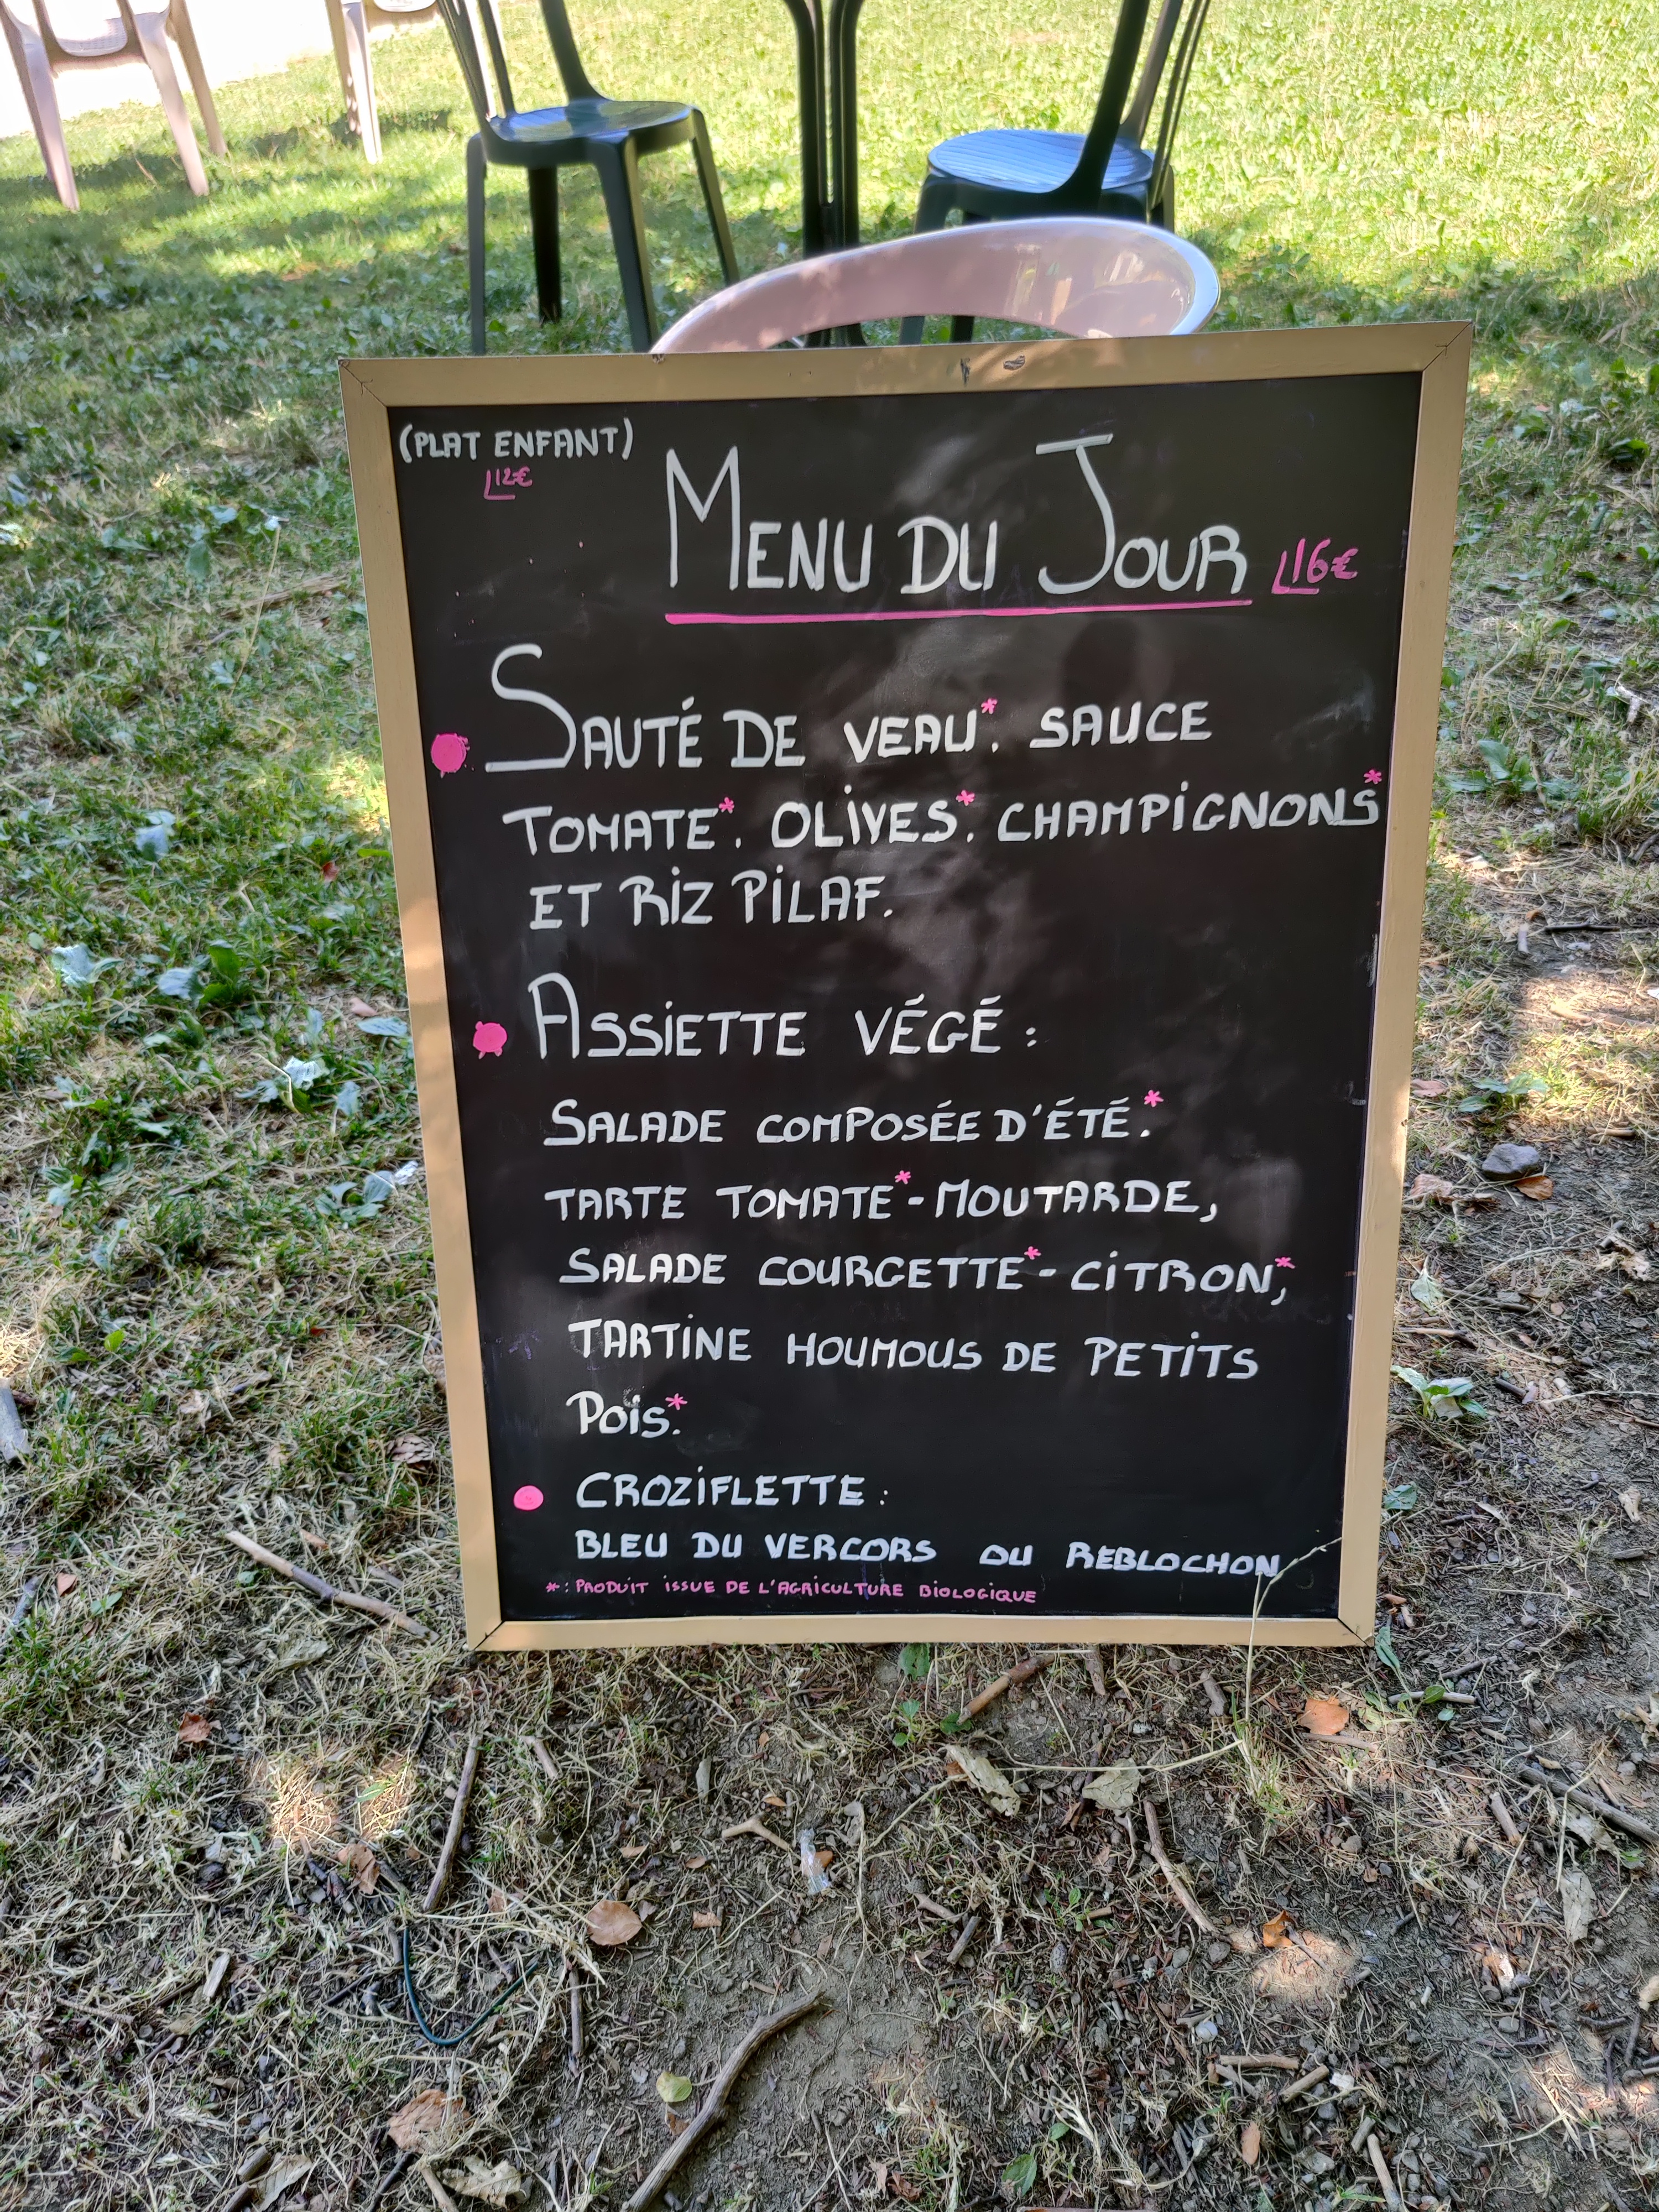 (PLAT ENFANT)
12€
MENU DU JOUR 16€
SAUTÉ DE VEAU*. SAUCE
TOMATE*. OLIVES*. CHAMPIGNONS*
ET RIZ PILAF.
ASSIETTE VÉGÉ :
SALADE COMPOSÉE D'ÉTÉ.*
TARTE TOMATE*-MOUTARDE,
SALADE COURGETTE*-CITRON,*
TARTINE HOUMOUS DE PETITS
POIS.*
CROZIFLETTE :
BLEU DU VERCORS OU REBLOCHON
* : PRODUIT ISSUE DE L'AGRICULTURE BIOLOGIQUE